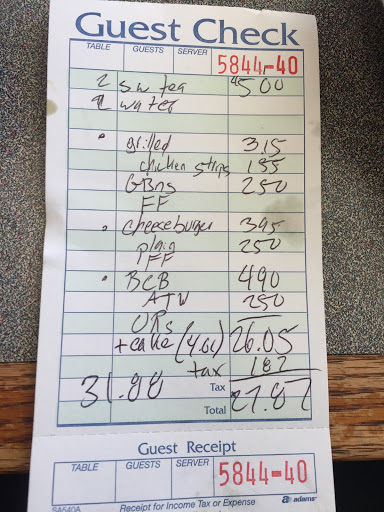 Guest Check
TABLE GUESTS SERVER
5844-40
2 sw tea 500
2 water
grilled 315
chicken strips 155
GBns 250
FF
cheeseburger 395
plain 250
FF
BCB 490
ATW 250
ORs
+cake (4.00) 26.05
tax 182
31.88 Tax
Total 27.87
Guest Receipt
TABLE GUESTS SERVER
5844-40
SA540A Receipt for Income Tax or Expense adams